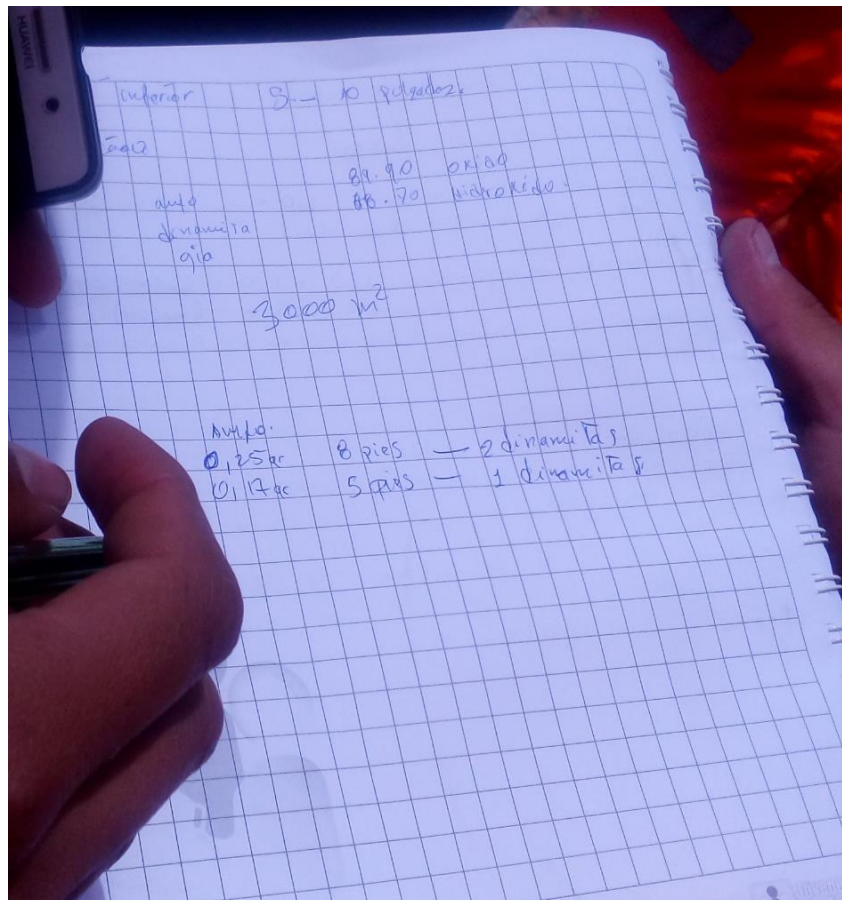 HUAWEI
inferior 8 - 10 pulgadas.
89.90 oxido
88.70 Hidroxido.
anfo
dinamita
gia
3,000 m²
Anfo.
0,25qc 8 pies — 2 dinamitas
0,17qc 5 pies — 1 dinamitas